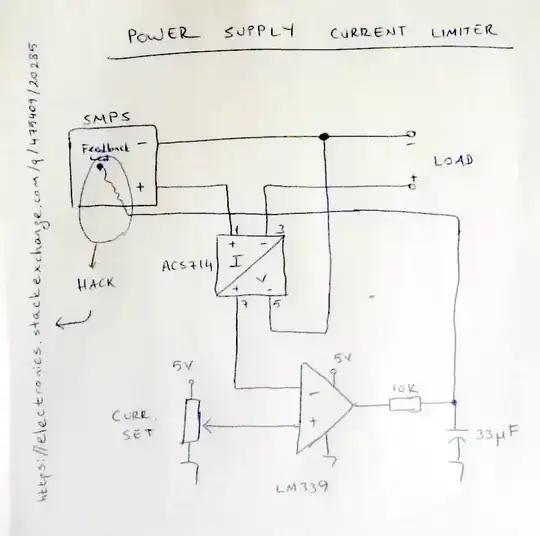 POWER SUPPLY CURRENT LIMITER
https://electronics.stackexchange.com/q/475409/20285
SMPS
Feedback
-
+
-
+
LOAD
HACK
ACS714
1
3
+
-
I
V
+
-
7
5
5V
CURR.
SET
5V
-
+
LM339
10K
33µF